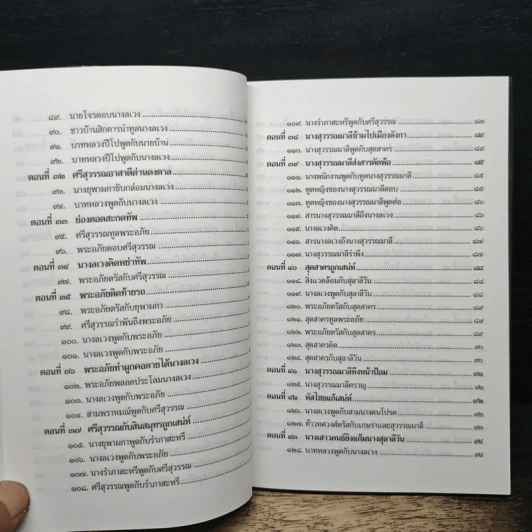 ๘๙. นายโจรตอบนางลเวง
๙๐. ชาวบ้านสิกคารนำทูลนางลเวง
๙๑. บาทหลวงปีโปพูดกับนายบ้าน
๙๒. บาทหลวงปีโปพูดกับนางลเวง
ตอนที่ ๓๒ ศรีสุวรรณอาสาตีด่านดงตาล
๙๓. นางยุพาผกาขับกล่อมนางลเวง
๙๔. บาทหลวงพูดกับนางลเวง
ตอนที่ ๓๓ ย่องตอดสะกดทัพ
๙๕. ศรีสุวรรณทูลพระอภัย
๙๖. พระอภัยตอบศรีสุวรรณ
ตอนที่ ๓๔ นางลเวงคิดหย่าทัพ
๙๗. พระอภัยตรัสกับศรีสุวรรณ
ตอนที่ ๓๕ พระอภัยติดท้ายรถ
๙๘. พระอภัยตรัสกับยุพาผกา
๙๙. ศรีสุวรรณรำพันถึงพระอภัย
๑๐๐. นางลเวงพูดกับพระอภัย
๑๐๑. นางลเวงพูดกับพระอภัย
ตอนที่ ๓๖ พระอภัยทำผูกคอตายได้นางลเวง
๑๐๒. พระอภัยพลอดประโลมนางลเวง
๑๐๓. นางลเวงพูดกับพระอภัย
๑๐๔. สามพราหมณ์พูดกับศรีสุวรรณ
ตอนที่ ๓๗ ศรีสุวรรณกับสินสมุทรถูกเสน่ห์
๑๐๕. นางยุพาผกาพูดกับรำภาสะหรี
๑๐๖. นางลเวงพูดกับพระอภัย
๑๐๗. นางรำภาสะหรีพูดกับศรีสุวรรณ
๑๐๘. ศรีสุวรรณพูดกับรำภาสะหรี
๑๐๙. นางรำภาสะหรีพูดกับศรีสุวรรณ ๘๓
ตอนที่ ๓๘ นางสุวรรณมาลีข้ามไปเมืองลังกา ๘๔
๑๑๐. นางสุวรรณมาลีพูดกับสุดสาคร ๘๔
ตอนที่ ๓๙ นางสุวรรณมาลีส่งสารตัดพ้อ ๘๕
๑๑๑. นางพนักงานพูดกับทูตนางสุวรรณมาลี ๘๕
๑๑๒. ทูตหญิงของนางสุวรรณมาลีตอบ ๘๕
๑๑๓. ทูตหญิงของนางสุวรรณมาลีพูดต่อ ๘๖
๑๑๔. สารนางสุวรรณมาลีถึงนางลเวง ๘๖
๑๑๕. นางลเวงคิด ๘๖
๑๑๖. สารนางลเวงถึงนางสุวรรณมาลี ๘๗
๑๑๗. นางสุวรรณมาลีรำพึง ๘๗
ตอนที่ ๔๐ สุดสาครถูกเสน่ห์ ๘๘
๑๑๘. สิ่งแวดล้อมกับสุลาลีวัน ๘๘
๑๑๙. นางลเวงพูดกับสุลาลีวัน ๘๘
๑๒๐. พระอภัยตรัสกับสุดสาคร ๘๙
๑๒๑. สุดสาครทูลพระอภัย ๘๙
๑๒๒. พระอภัยตรัสกับสุดสาคร ๘๙
๑๒๓. สุดสาครคิด ๙๐
๑๒๔. สุดสาครกับสุลาลีวัน ๙๐
ตอนที่ ๔๑ นางสุวรรณมาลีหึงหน้าป้อม ๙๑
๑๒๕. นางสุวรรณมาลีครวญ ๙๑
ตอนที่ ๔๒ หัสไชยแก้เสน่ห์ ๙๒
๑๒๖. นางลเวงพูดกับสานุนางคนโปรด ๙๒
๑๒๗. ท้าวทศวงศ์ตรัสกับเกษราและสุวรรณมาลี ๙๓
ตอนที่ ๔๓ นางเสาวคนธ์ยิงแก้มนางสุลาลีวัน ๙๔
๑๒๘. บาทหลวงพูดกับนางลเวง ๙๔